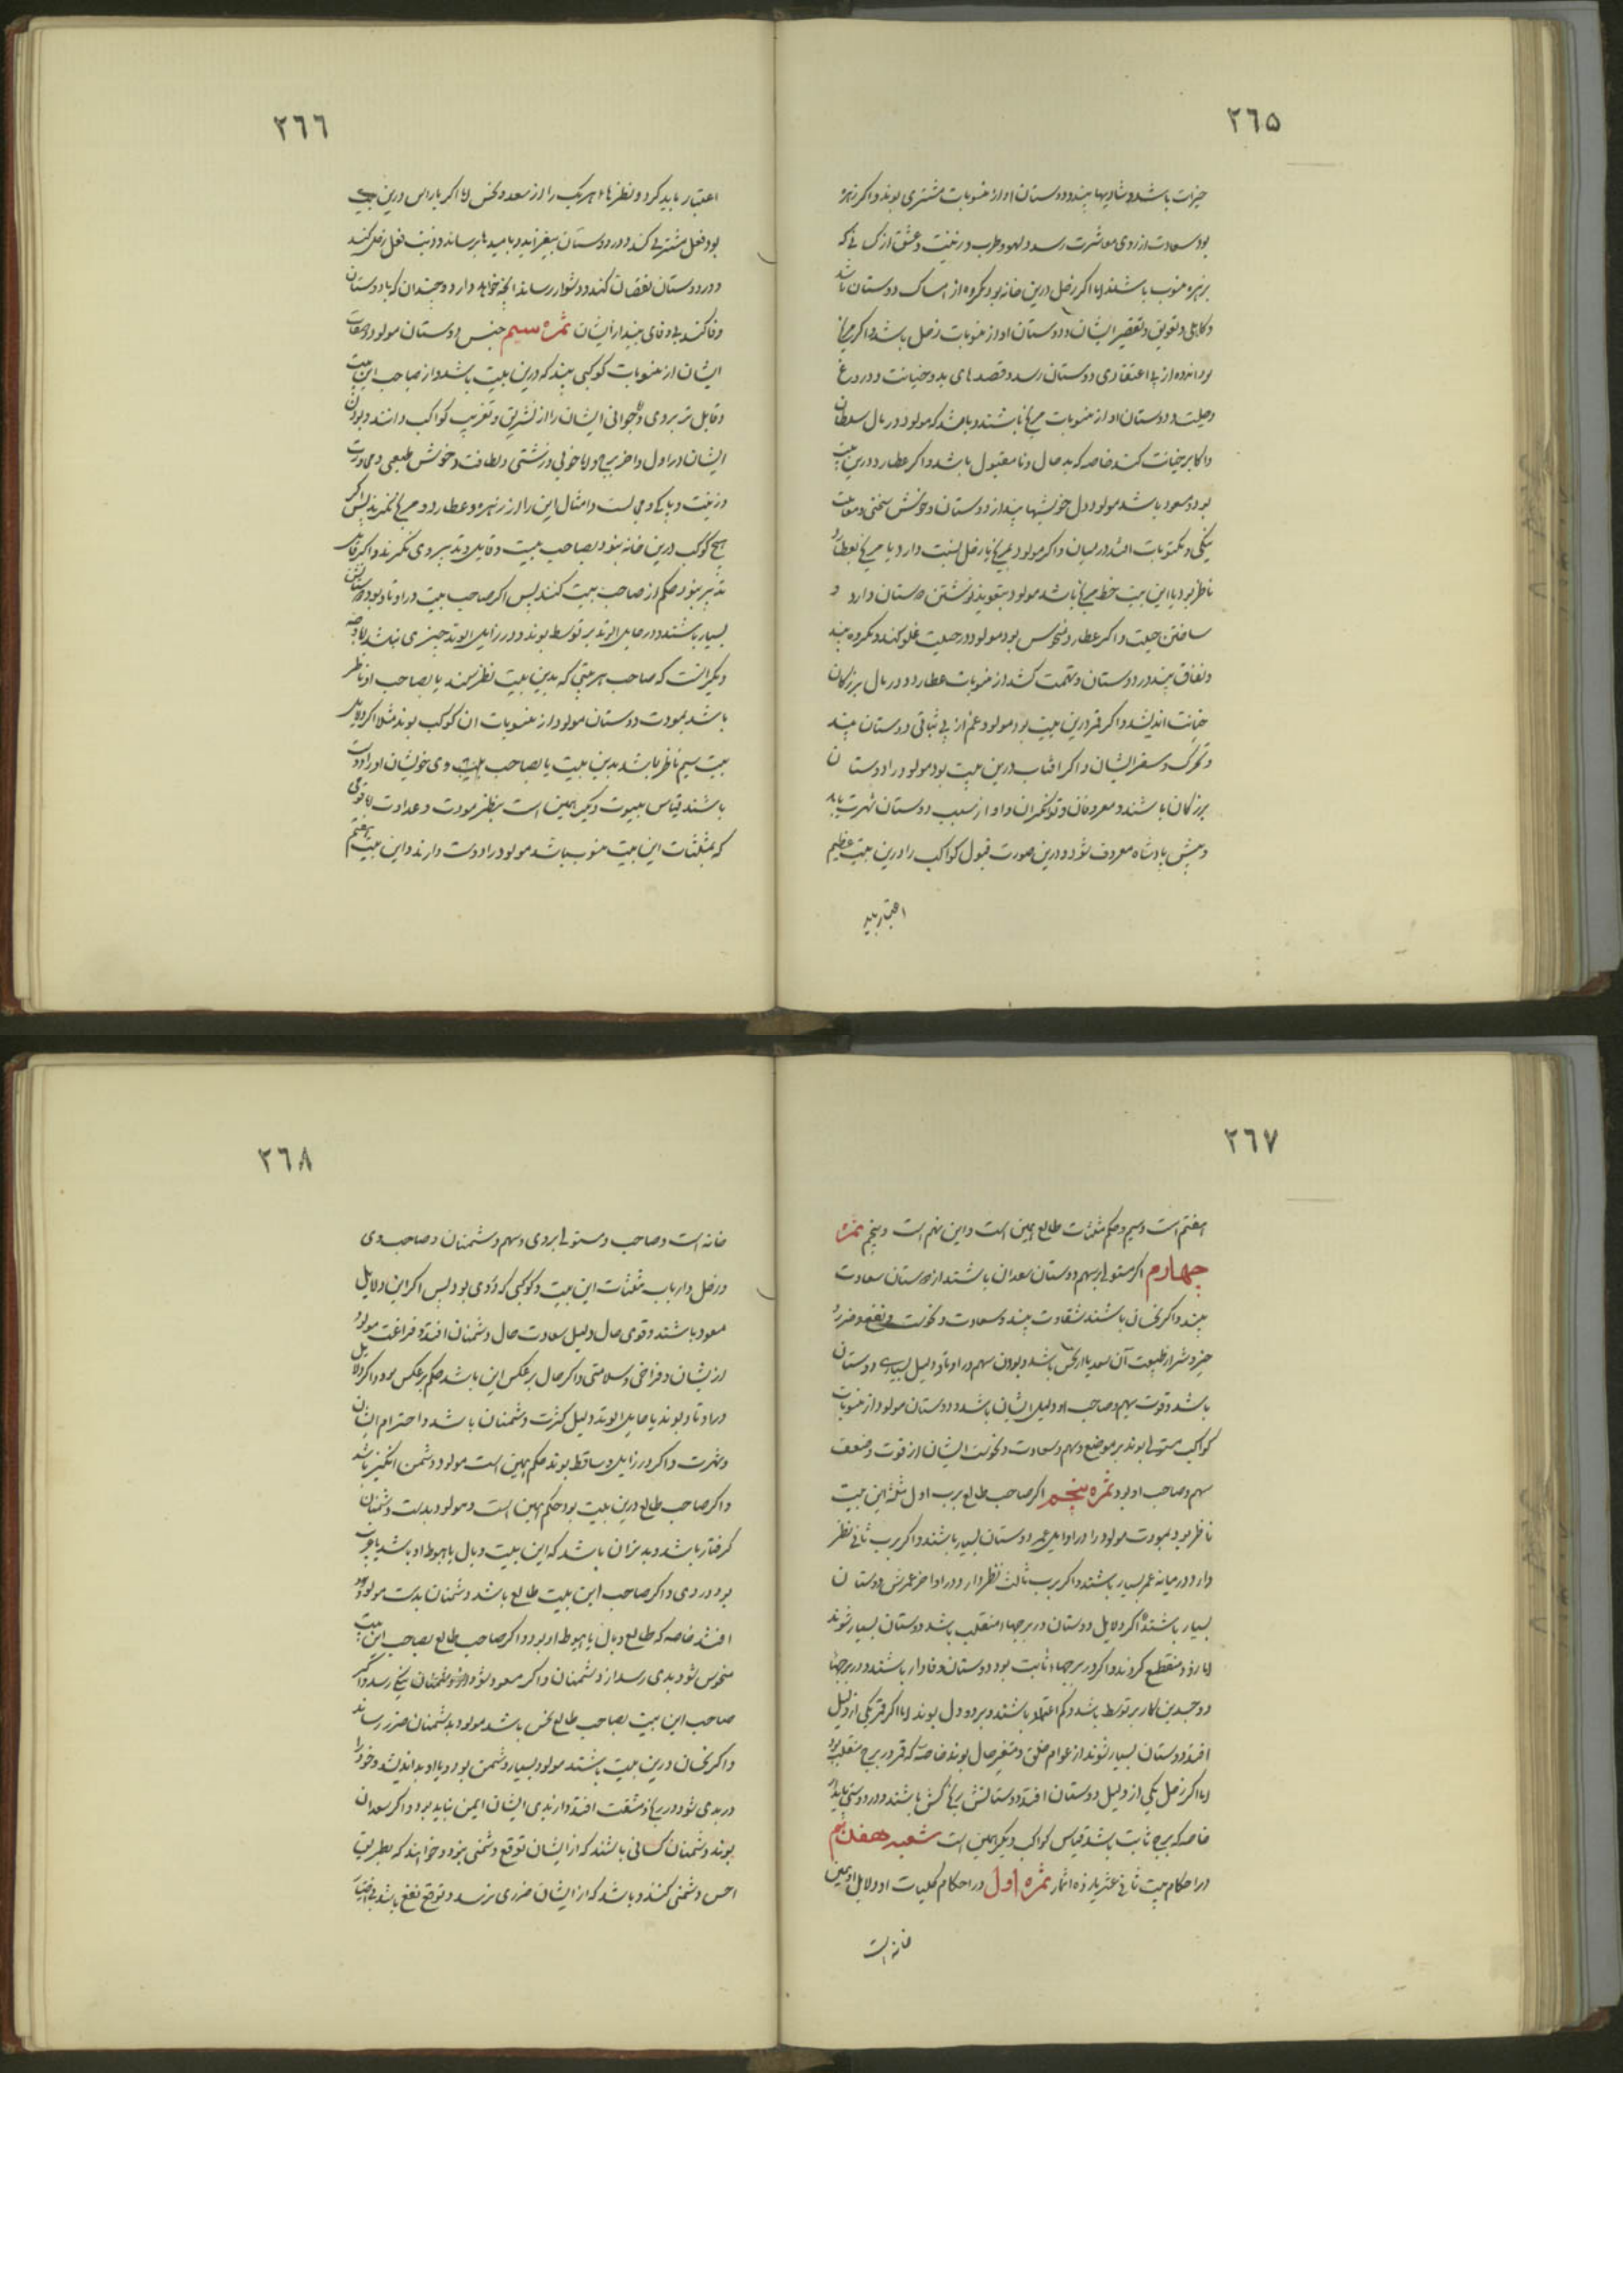 ٢٦٥
خیرات باشد و شادیها بیند و دوستان او از منسوبات مشتری بوند و اگر زهره
بود سعادت از روی معاشرت رسد و لهو و طرب و زینت و عشق از کسانی که
بزهره منسوب باشند اما اگر زحل درین خانه بود مکروه از امساک دوستان باشد
و کاهلی و تعویق و تقصیر ایشان و دوستان او از منسوبات زحل باشد و اگر مریخ
بود اندوه از بی اعتقادی دوستان رسد و قصدهای بد و خیانت و دروغ
و حیلت و دوستان او از منسوبات مریخ باشند و باشد که مولود در مال سلطان
و اکابر خیانت کند خاصه که بد حال و نا مقبول باشد و اگر عطارد درین بیت
بود و مسعود باشد مولود دل خوشیها بیند از دوستان و خوش سخنی و
نیکی و مکتوبات افتد در میان و اگر مولود بمریخ یا زحل نسبت دارد یا مریخ بعطارد
ناظر بود یا این بیت خط مریخ باشد مولود بتعویذ نوشتن دوستان دارد و
ساختن حیلت و اگر عطارد منحوس بود مولود در حیلت غلو کند و مکروه بیند
و نفاق بیند در دوستان و تهمت کشد از منسوبات عطارد و در مال بزرگان
خیانت اندیشد و اگر قمر درین بیت بود مولود غم از بی ثباتی دوستان بیند
و تحرک و سفر ایشان و اگر افتاب درین بیت بود مولود را دوستان
بزرگان باشند و معروفان و توانگران و او از سبب دوستان شهرت یابد
و پیش پادشاه معروف شود و درین صورت قبول کواکب را درین بیت عظیم
اعتبار باید
٢٦٦
اعتبار باید کرد و نظرهاء هر یک را از سعد و نحس اما اگر با راس درین بیت
بود فعل مشتری کند و در دوستان بیفزاید و بامیدها برساند و ذنب فعل زحل کند
و در دوستان نقصان کند و دشوار رساند انچه خواهد دارد و چندان که با دوستان
وفا کند بی وفای بیند از ایشان ثمره سیم جنس دوستان مولود و صفات
ایشان از منسوبات کوکبی بیند که درین بیت باشد و از صاحب این بیت
و قابل تدبیر وی و جوانی ایشان را از تشریق و تغریب کواکب دانند و بودن
ایشان در اول و اخر برج و اما خوبی و زشتی و لطافت و خوش طبعی و
و زینت و پاکی و مجالست و امثال این را از زهره و عطارد و مریخ نگرند پس اگر
هیچ کوکب درین خانه نبود بصاحب بیت و قابل تدبیر وی نگرند و اگر قابل
تدبیر نبود حکم از صاحب بیت کنند پس اگر صاحب بیت در اوتاد بود دوستانش
بسیار باشند و در مایل الوتد بر توسط بوند و در زایل الوتد چیزی نباشد اما وجه
دیگر انست که صاحب هر بیتی که بدین بیت نظر کند یا بصاحب او ناظر
باشد بمودت دوستان مولود از منسوبات ان کوکب بوند مثلا اگر دلایل
بیت سیم ناظر باشد بدین بیت یا بصاحب بیت وی خویشان او را دوست
باشند قیاس بیوت دیگر همین است بنظر مودت و عداوت اما قومی
که بمثلثات این بیت منسوب باشد مولود را دوست دارند و این بیت هفتم
٢٦٧
هفتم است و سیم و حکم مثلثات طالع همین است و این نهم است و پنجم ثمره
چهارم اگر مستولی بر سهم دوستان سعدان باشند از دوستان سعادت
بیند و اگر نحسان باشند شقاوت بیند و سعادت و نحوست و نفع و ضرر و
خیر و شر از طبیعت آن سعد یا ان نحس باشد و بودن سهم در اوتاد دلیل بسیاری دوستان
باشد و قوت سهم و صاحب او دلیل ایشان باشد و دوستان مولود از منسوبات
کواکب مستولی بوند بر موضع و سهم و سعادت و نحوست ایشان از قوت و ضعف
سهم و صاحب او بود ثمره پنجم اگر صاحب طالع برب اول مثلثه این بیت
ناظر بود بمودت مولود را در اوایل عمر دوستان بسیار باشند و اگر برب ثانی نظر
دارد در میانه عمر بسیار باشند و اگر برب ثالث نظر دارد در اواخر عمرش دوستان
بسیار باشند و اگر دلایل دوستان در برجهاء منقلب باشد دوستان بسیار شوند
اما زود منقطع گردند و اگر در برجهاء ثابت بود دوستان وفادار باشند و در برجهاء
دو جسدین کار بر توسط باشد و کم اعتماد باشند و بر دو دل بوند اما اگر قمر یکی از دلیل
افتد دوستان بسیار شوند از عوام خلق و متغیر حال بوند خاصه که قمر در برج منقلب بود
اما اگر زحل یکی از دلیل دوستان افتد دوستانش رنج کش باشند و در دوستی پایدار
خاصه که برج ثابت باشد قیاس کواکب دیگر همین است شعبه هفدهم
در احکام بیت ثانی عشر یازده اثمار ثمره اول در احکام کلیات او دلایل او همین
خانه است
٢٦٨
خانه است و صاحب و مستولی بر وی و سهم دشمنان و صاحب وی
و زحل و ارباب مثلثات این بیت و کوکبی که در وی بود پس اگر این دلایل
مسعود باشند و قوی حال دلیل سعادت حال دشمنان افتد و فراغت مولود
از ایشان و فراخی و سلامتی و اگر حال بر عکس این باشد حکم بر عکس بود و اگر دلایل
در اوتاد بوند یا مایل الوتد دلیل کثرت دشمنان باشد و احترام ایشان
و شهرت و اگر در زایل و ساقط بوند حکم همین است مولود دشمن انگیز باشد
و اگر صاحب طالع درین بیت بود حکم همین است و مولود بدست دشمنان
گرفتار باشد و بدتر ان باشد که این بیت وبال یا هبوط او باشد یا غریب
بود در وی و اگر صاحب این بیت طالع باشد دشمنان بدست مولود
افتند خاصه که طالع وبال یا هبوط او بود و اگر صاحب طالع بصاحب این بیت
منحوس شود بدی رسد از دشمنان و اگر مسعود شود از دشمنان نیکی رسد و اگر
صاحب این بیت بصاحب طالع نحس باشد مولود بدشمنان ضرر رساند
و اگر نحسان درین بیت باشند مولود بسیار دشمن بود و با او بد اندیشند و خود را
در بدی شود و در رنج و مشقت افتد و از بدی ایشان ایمن نباید بود و اگر سعدان
بوند دشمنان کسانی باشند که از ایشان توقع دشمنی نبود و خواهند که بطریق
احسن دشمنی کنند و باشد که از ایشان ضرری نرسد و توقع نفع باشد بی اختیار